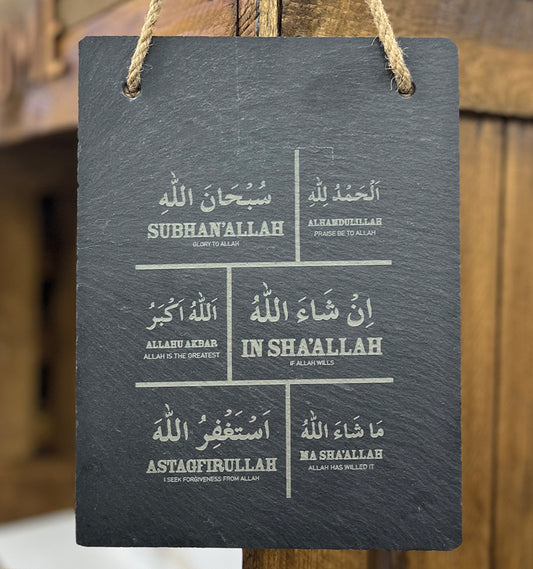 سُبْحَانَ اللّٰهِ
SUBHAN'ALLAH
GLORY TO ALLAH
اَلْحَمْدُ لِلّٰهِ
ALHAMDULILLAH
PRAISE BE TO ALLAH
اَللّٰهُ اَكْبَرُ
ALLAHU AKBAR
ALLAH IS THE GREATEST
اِنْ شَاءَ اللّٰهُ
IN SHA'ALLAH
IF ALLAH WILLS
اَسْتَغْفِرُ اللّٰهَ
ASTAGFIRULLAH
I SEEK FORGIVENESS FROM ALLAH
مَا شَاءَ اللّٰهُ
MA SHA'ALLAH
ALLAH HAS WILLED IT